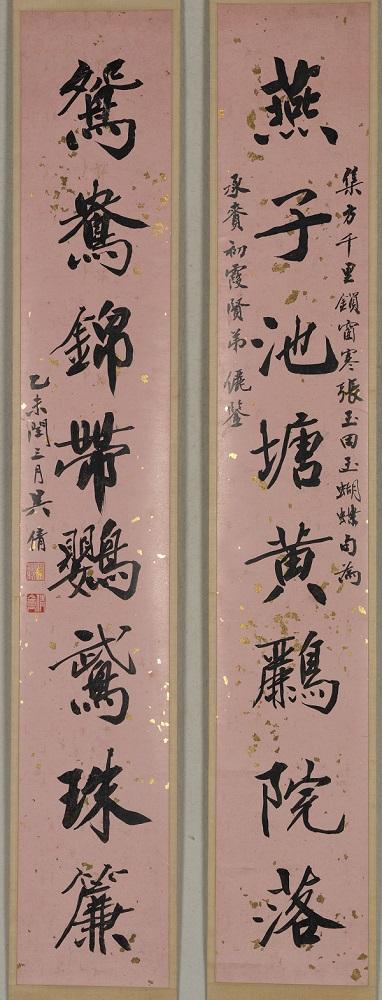 集方千里鎖窗寒張玉田玉蝴蝶句為
燕子池塘黄鸝院落
承賁初霞賢弟儷鑒
鴛鴦錦帶鸚鵡珠簾
乙未閏三月吳倩